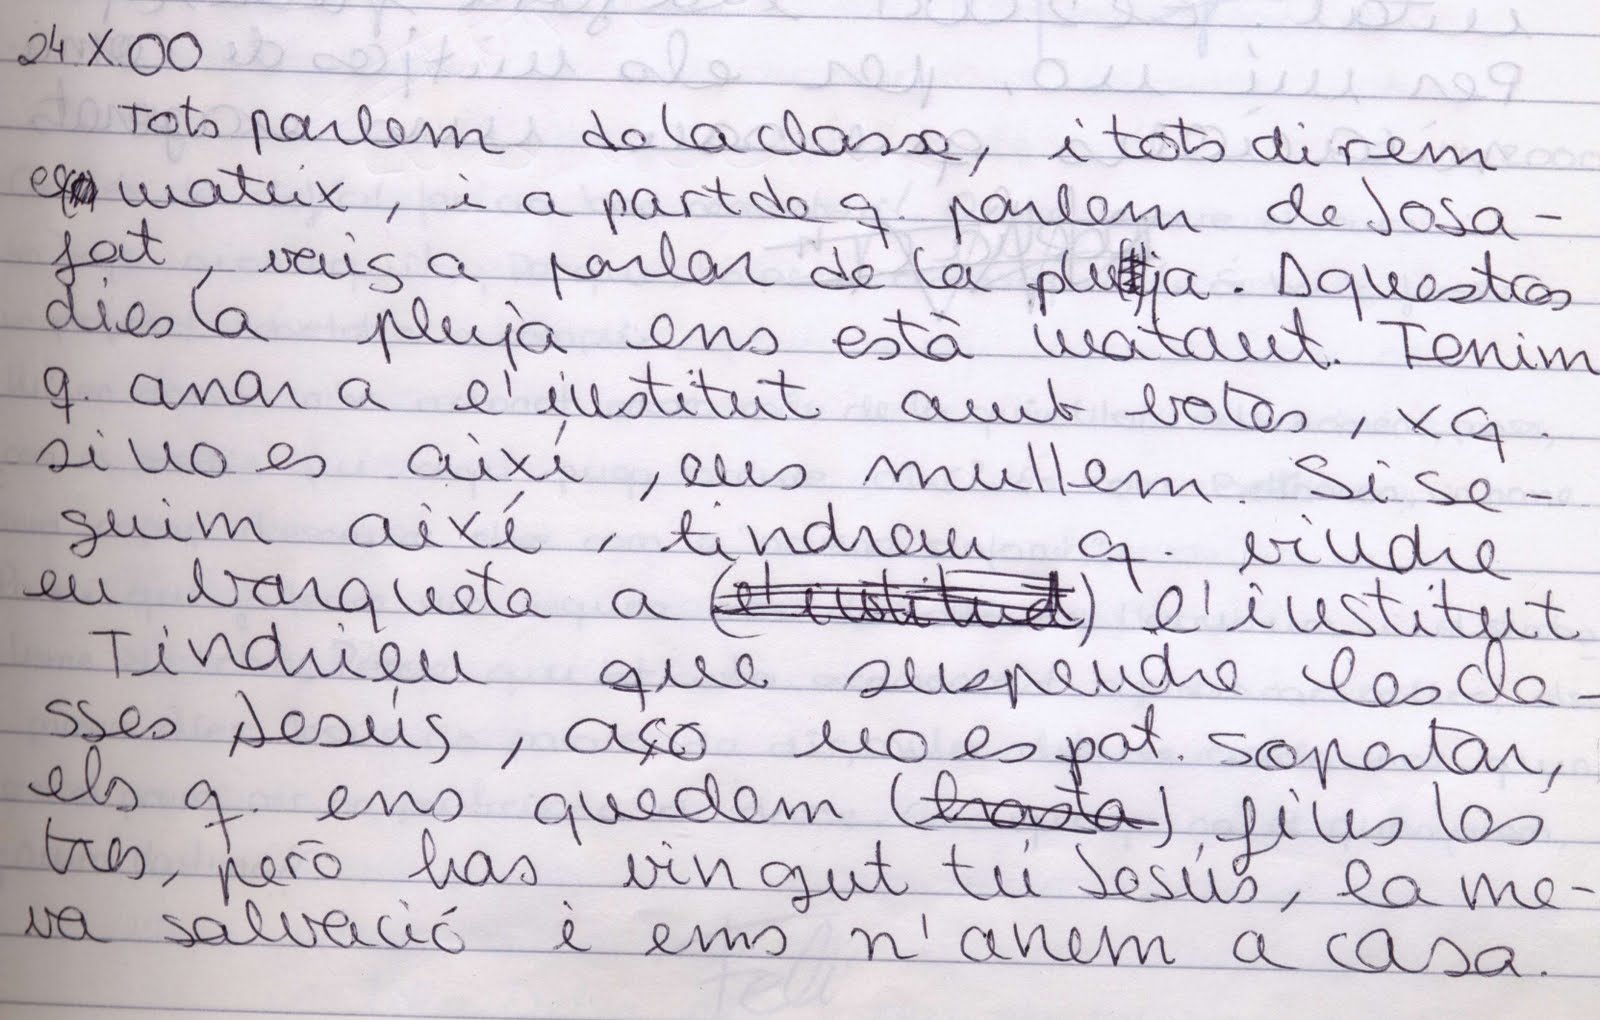 24.X.00
Tots parlem de la classe, i tots direm
el mateix, i a part de q. parlem de Josa-
fat, vaig a parlar de la pluja. Aquestos
dies la pluja ens està matant. Tenim
q. anar a l'institut amb botes, xq.
si no es així, ens mullem. Si se-
guim així, tindreu q. vindre
en barqueta a (l'institut) l'institut
Tindrieu que suspendre les cla-
sses Jesús, açò no es pot soportar,
els q. ens quedem (hasta) fins las
tres, però has vingut tú Jesús, la me-
va salvació i ems n'anem a casa.